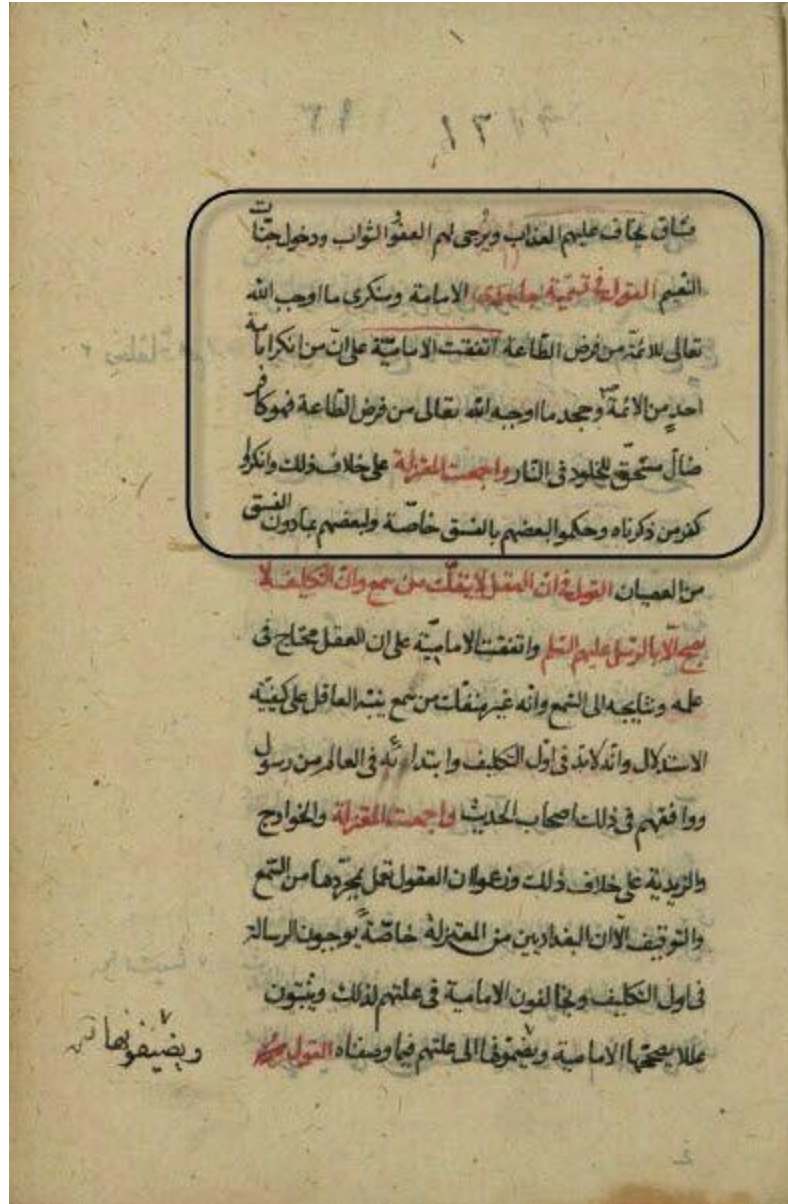 فساق يخاف عليهم العذاب ويرجى لهم العفو الثواب ودخول جنات
النعيم القول في تسمية جاحدي الامامة ومنكري ما اوجب الله
تعالى للائمة من فرض الطاعة اتفقت الامامية على ان من انكر امامة
احد من الائمة وجحد ما اوجبه الله تعالى من فرض الطاعة فهو كافر
ضال مستحق للخلود في النار واجمعت المعتزلة على خلاف ذلك وانكروا
كفر من ذكرناه وحكموا لبعضهم بالفسق خاصة ولبعضهم بما دون الفسق
من العصيان القول في ان العقل لا ينفك من سمع وان التكليف لا
يصح الا بالرسل عليهم السلم واتفقت الامامية على ان العقل محتاج في
علمه ونتايجه الى السمع وانه غير منفك من سمع ينبه العاقل على كيفية
الاستدلال وانه لابد في اول التكليف وابتدائه في العالم من رسول
ووافقهم في ذلك اصحاب الحديث واجمعت المعتزلة والخوارج
والزيدية على خلاف ذلك وزعموا ان العقول تعمل بمجردها من السمع
والتوقيف الا ان البغداديين من المعتزلة خاصة يوجبون الرسالة
في اول التكليف ويخالفون الامامية في علتهم لذلك ويثبتون
عللا يصححها الامامية ويضيفونها الى علتهم فيما وصفناه القول
ويضيفونها